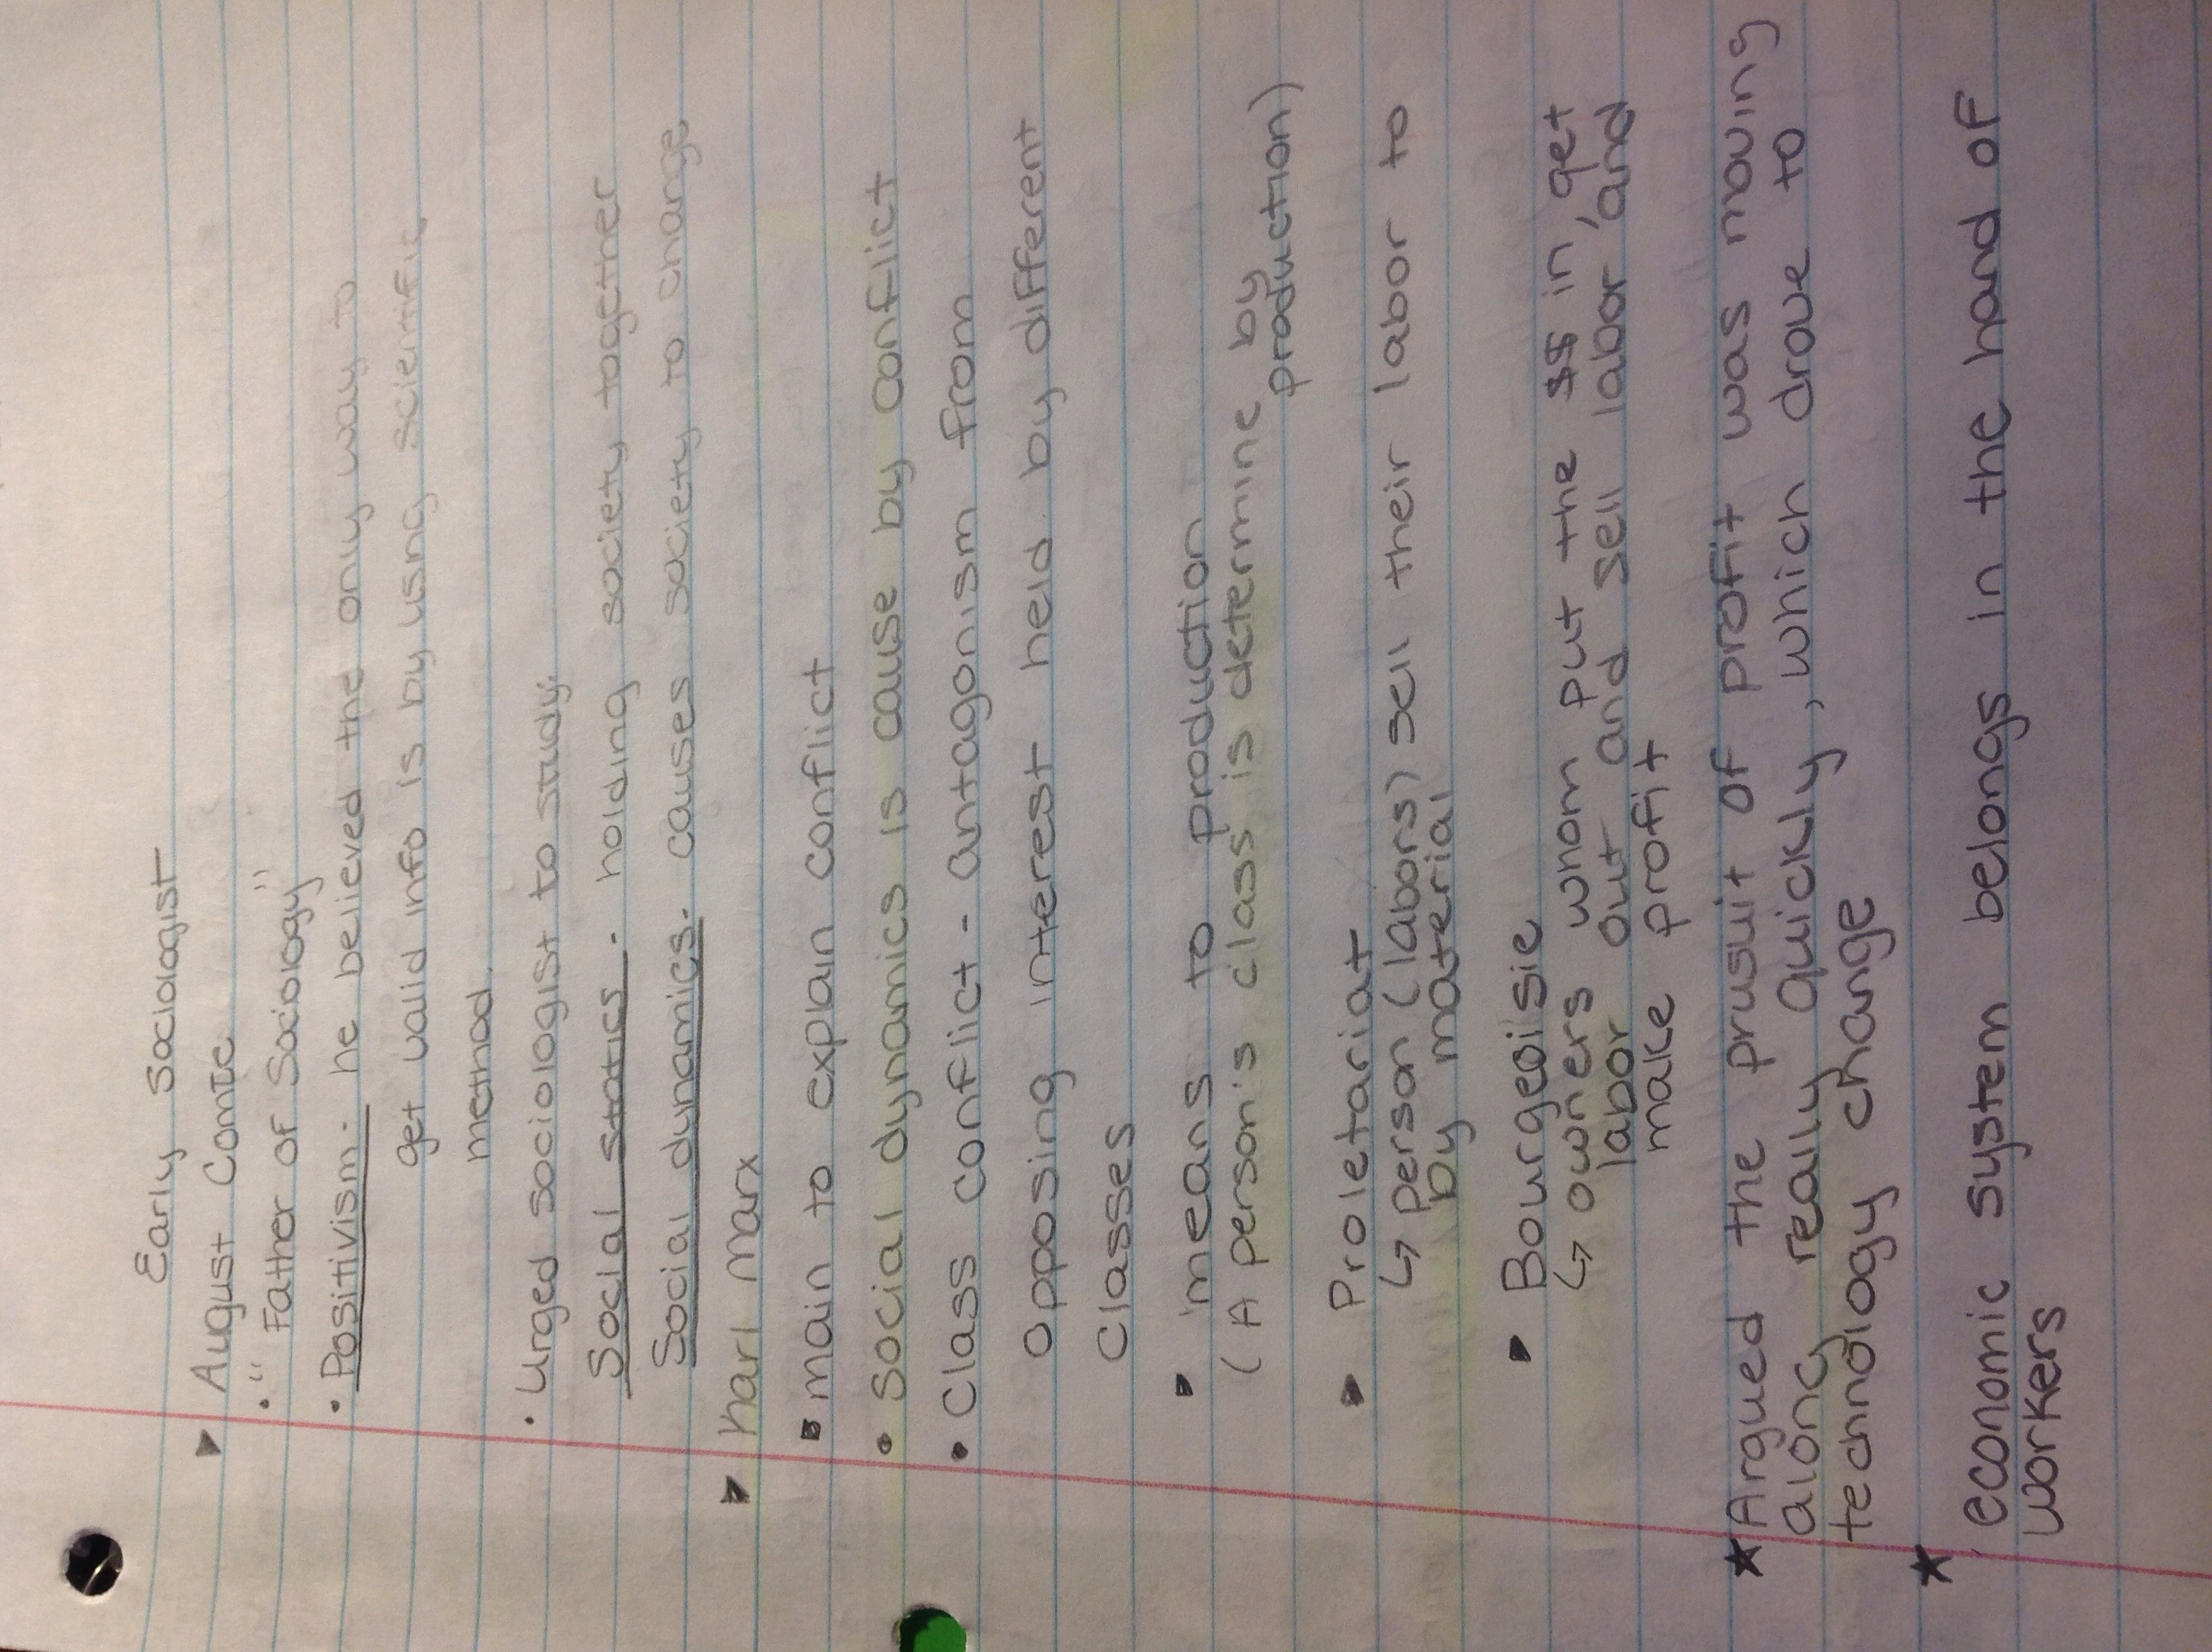 Early Sociologist
▸ August Comte
• "Father of Sociology"
• Positivism - he believed the only way to
get valid info is by using scientific
method.
• Urged sociologist to study.
Social statics - holding society together
Social dynamics - causes society to change
▸ Karl Marx
▪ main to explain conflict
• Social dynamics is cause by conflict
• Class conflict - antagonism from
opposing interest held by different
classes
▪ means to production
(A person's class is determine by
production)
▪ Proletariat
↳ person (labors) sell their labor to
by material
▪ Bourgeoisie
↳ owners whom put the $$ in, get
labor out and sell labor, and
make profit
★ Argued the prusuit of profit was moving
along really quickly, which drove to
technology change
★ economic system belongs in the hand of
workers